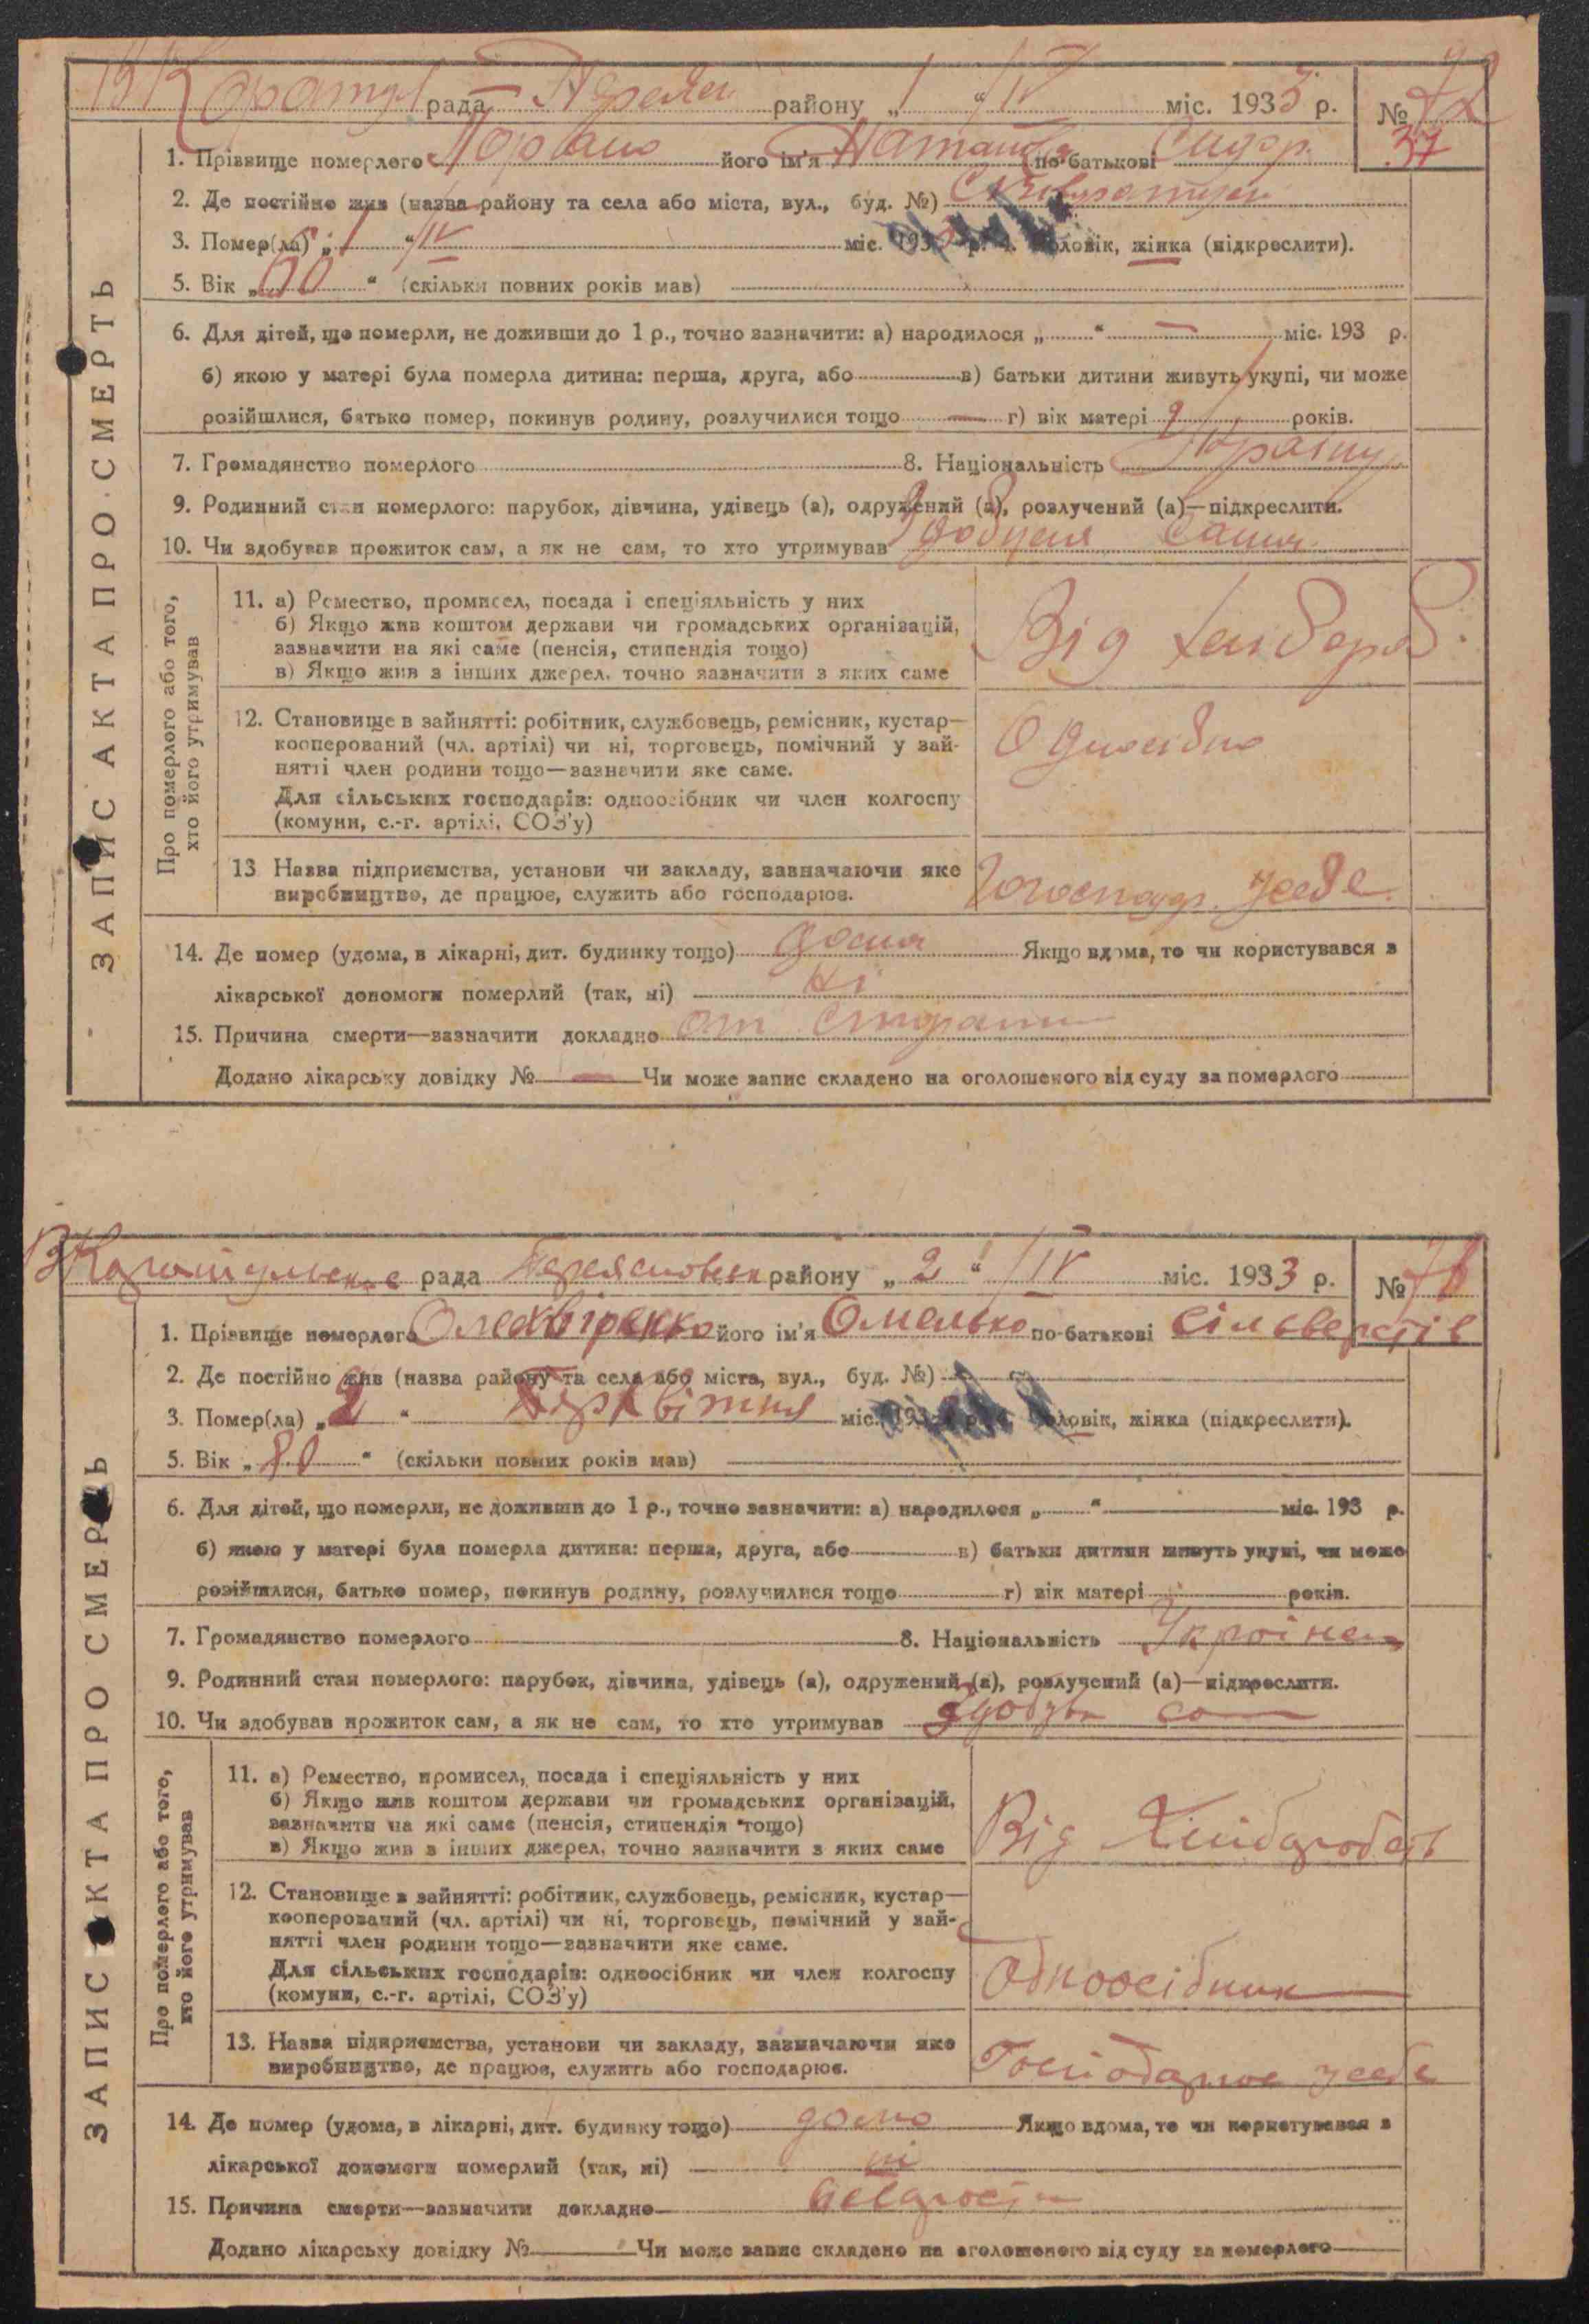 рада Переял району „ 1 “ IV міс. 1933 р. №
37
1. Прізвище померлого його ім'я Наталка по-батькові Сидор.
2. Де постійно жив (назва району та села або міста, вул., буд. №)
3. Помер(ла) „ 1 “ IV міс. 193 р. 4. Чоловік, жінка (підкреслити).
5. Вік „ “ (скільки повних років мав)
6. Для дітей, що померли, не доживши до 1 р., точно зазначити: а) народилося „ “ — міс. 193 р.
б) якою у матері була померла дитина: перша, друга, або в) батьки дитини живуть укупі, чи може
розійшлися, батько помер, покинув родину, розлучилися тощо — г) вік матері років.
7. Громадянство померлого 8. Національність
9. Родинний стан померлого: парубок, дівчина, удівець (а), одружений (а), розлучений (а)—підкреслити.
10. Чи здобував прожиток сам, а як не сам, то хто утримував
ЗАПИС АКТА ПРО СМЕРТЬ
Про померлого або того,
хто його утримував
11. а) Ремество, промисел, посада і спеціяльність у них
б) Якщо жив коштом держави чи громадських організацій,
зазначити на які саме (пенсія, стипендія тощо)
в) Якщо жив з інших джерел, точно зазначити з яких саме
Від
12. Становище в зайнятті: робітник, службовець, ремісник, кустар—
кооперований (чл. артілі) чи ні, торговець, помічний у зай-
нятті член родини тощо—зазначити яке саме.
Для сільських господарів: одноосібник чи член колгоспу
(комуни, с.-г. артілі, СОЗ'у)
13 Назва підприємства, установи чи закладу, зазначаючи яке
виробництво, де працює, служить або господарює.
у себе
14. Де помер (удома, в лікарні, дит. будинку тощо) дома Якщо вдома, то чи користувався з
лікарської допомоги померлий (так, ні) ні
15. Причина смерти—зазначити докладно от
Додано лікарську довідку № — Чи може запис складено на оголошеного від суду за померлого
рада району „ 2 “ IV міс. 1933 р. №
1. Прізвище померлого його ім'я Омелько по-батькові
2. Де постійно жив (назва району та села або міста, вул., буд. №)
3. Помер(ла) „ 2 “ міс. 193 р. 4. Чоловік, жінка (підкреслити).
5. Вік „ 80 “ (скільки повних років мав)
6. Для дітей, що померли, не доживши до 1 р., точно зазначити: а) народилося „ “ міс. 193 р.
б) якою у матері була померла дитина: перша, друга, або в) батьки дитини живуть укупі, чи може
розійшлися, батько помер, покинув родину, розлучилися тощо г) вік матері років.
7. Громадянство померлого 8. Національність Українець
9. Родинний стан померлого: парубок, дівчина, удівець (а), одружений (а), розлучений (а)—підкреслити.
10. Чи здобував прожиток сам, а як не сам, то хто утримував здобув сам
ЗАПИС АКТА ПРО СМЕРТЬ
Про померлого або того,
хто його утримував
11. а) Ремество, промисел, посада і спеціяльність у них
б) Якщо жив коштом держави чи громадських організацій,
зазначити на які саме (пенсія, стипендія тощо)
в) Якщо жив з інших джерел, точно зазначити з яких саме
Від
12. Становище в зайнятті: робітник, службовець, ремісник, кустар—
кооперований (чл. артілі) чи ні, торговець, помічний у зай-
нятті член родини тощо—зазначити яке саме.
Для сільських господарів: одноосібник чи член колгоспу
(комуни, с.-г. артілі, СОЗ'у)
Одноосібник
13. Назва підприємства, установи чи закладу, зазначаючи яке
виробництво, де працює, служить або господарює.
Господарює у себе
14. Де помер (удома, в лікарні, дит. будинку тощо) дома Якщо вдома, то чи користувався з
лікарської допомоги померлий (так, ні) ні
15. Причина смерти—зазначити докладно
Додано лікарську довідку № Чи може запис складено на оголошеного від суду за померлого